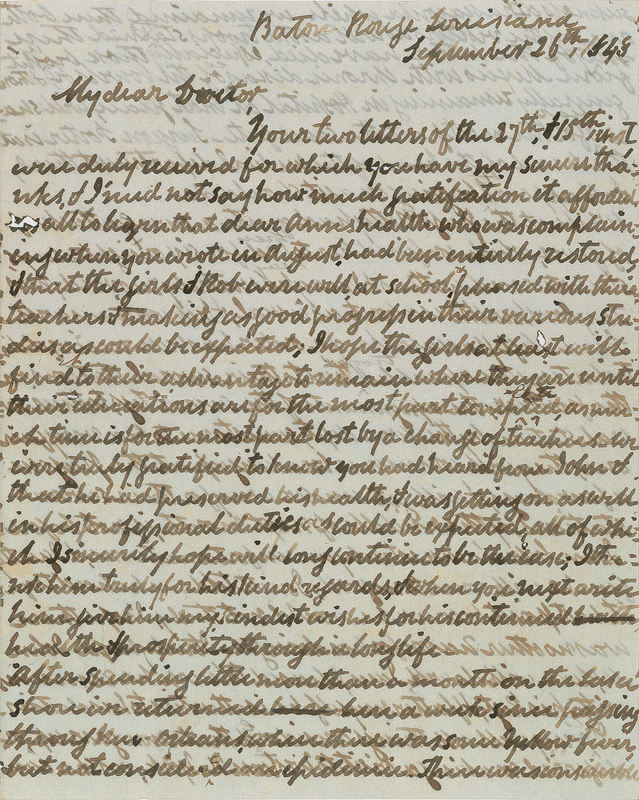 Baton Rouge Louisiana
September 26th, 1848
My dear Doctor,
Your two letters of the 27th, & 15th inst
were duly received for which you have my sincere tha-
nks, & I need not say how much gratification it afforded
us all to learn that dear Anns health, who was complain-
ing when you wrote in August, had been entirely restored,
& that the girls & Rob were well at school, pleased with their
teachers & making as good progress in their various stu
dies as could be expected; I hope the girls at least will
find to their advantage to remain where they are until
their educations are for the most part completed, as mu
ch time is for the most part lost by a change of teachers. we
were truly gratified to know you had heard from John &
that he had preserved his health, & was getting on as well
in his professional duties as could be expected, all of whi
ch I sincerely hope will long continue to be the case; I tha
nk him truly for his kind regards, & when you next write
him give him my kindest wishes for his continued
health & prosperity through a long life
After spending little more than a month on the
shore we returned here a week since, passing
through New orleans, where there was some Yellow fever,
but not considered an epidemic. There was considerable